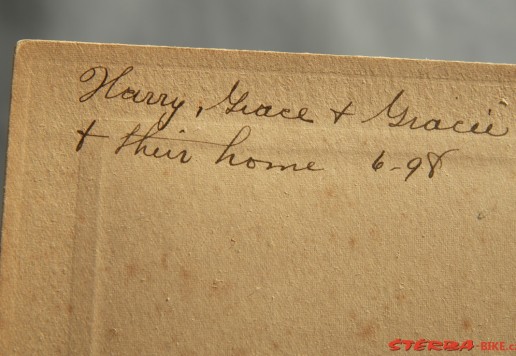 Harry, Grace + Gracie
+ their home 6-98
ŠTĚRBA-BIKE.c